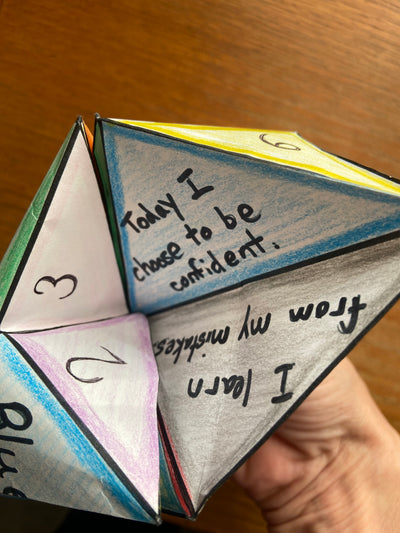 6
Today I
choose to be
confident.
3
2
I learn
from my mistakes.
Blue